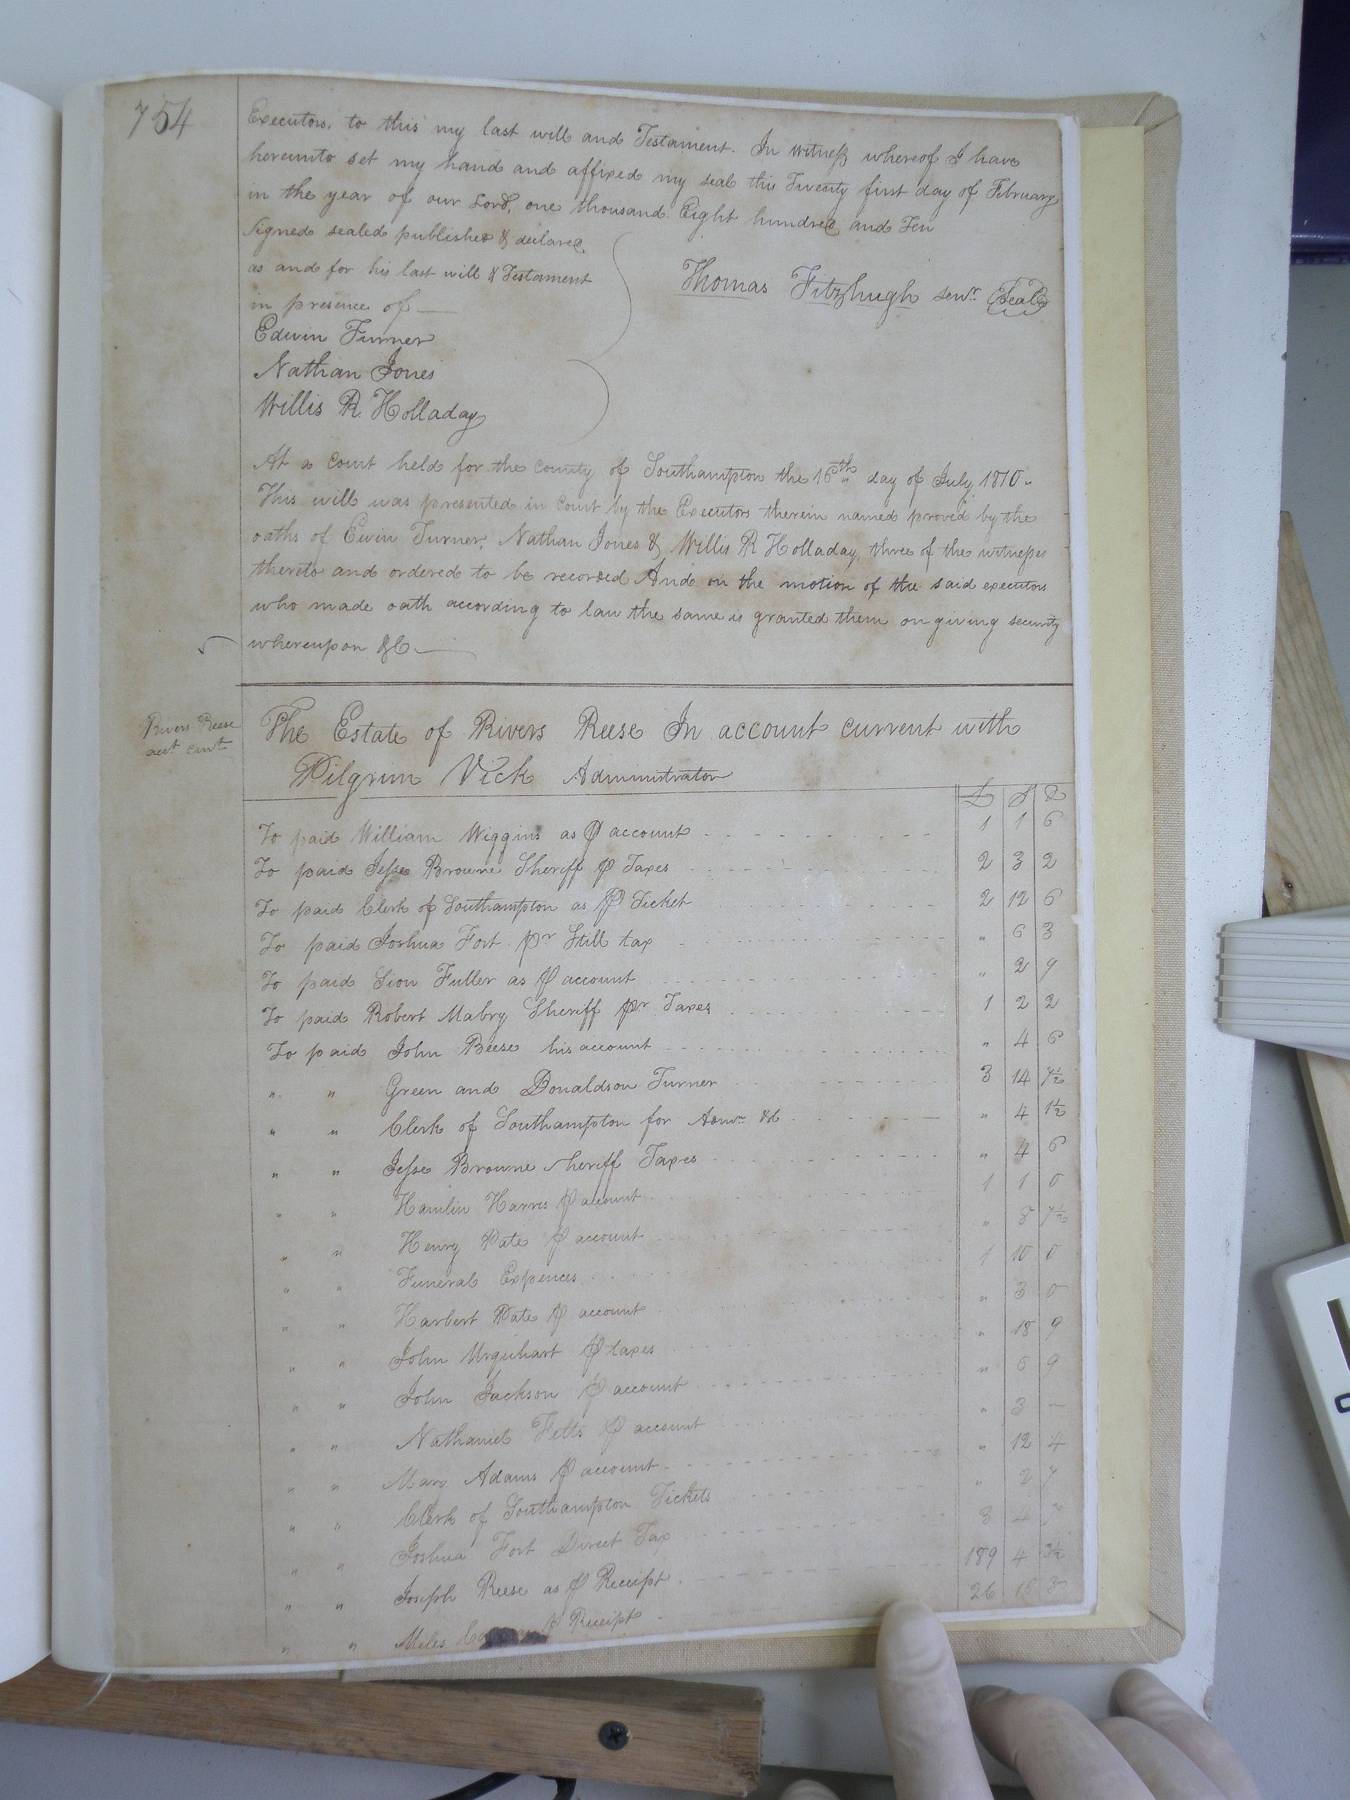 754
Executors, to this my last will and Testament. In witness whereof I have
hereunto set my hand and affixed my seal this Twenty first day of February
in the year of our Lord, one thousand Eight hundred and Ten
Signed sealed published & declared
as and for his last will & Testament
in presence of
Thomas Fitzhugh senr. Seal
Edwin Turner
Nathan Jones
Willis R. Holladay
At a Court held for the county of Southampton the 16th day of July 1810.
This will was presented in Court by the Executors therein named proved by the
oaths of Ewin Turner, Nathan Jones & Willis R Holladay, three of the witnesses
thereto and ordered to be recorded And on the motion of the said executors
who made oath according to law the same is granted them on giving security
whereupon &C
Rivers Reese
act. curt.
The Estate of Rivers Reese In account current with
Pilgrim Vick Administrator
£ S D
To paid William Wiggins as ₱ account 1 1 6
To paid Jesse Browne Sheriff ₱ Taxes 2 3 2
To paid Clerk of Southampton as ₱ Ticket 2 12 6
To paid Joshua Fort pr Still tax " 6 3
To paid Sion Fuller as ₱ account " 2 9
To paid Robert Mabry Sheriff pr Taxes 1 2 2
To paid John Reese his account " 4 6
" " Green and Donaldson Turner 3 14 7½
" " Clerk of Southampton for Admr. &C " 4 1½
" " Jesse Browne sheriff Taxes " 4 6
" " Hamlin Harris ₱ account 1 1 0
" " Henry Pate ₱ account " 8 7½
" " Funeral Expences 1 10 0
" " Harbert Pate ₱ account " 3 0
" " John Urquhart ₱ taxes " 18 9
" " John Jackson ₱ account " 6 9
" " Nathaniel Felts ₱ account " 3 –
" " Mary Adams ₱ account " 12 4
" " Clerk of Southampton Tickets " 2 7
" " Joshua Fort Direct Tax
" " Joseph Reese as ₱ Receipt 189 4 3½
" " Miles ₱ Receipt 26